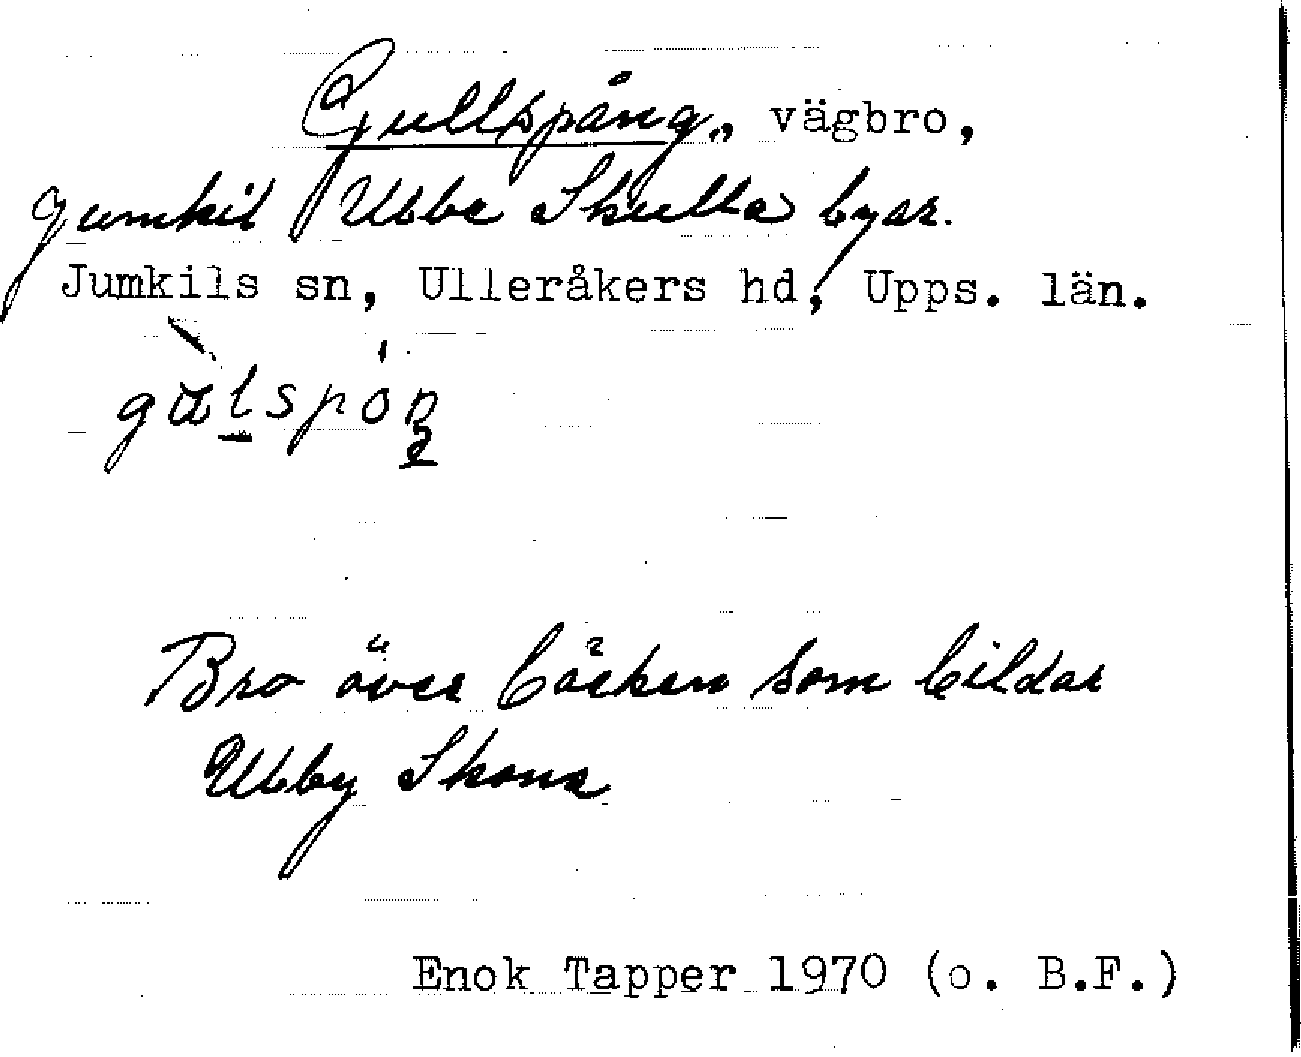 Gullspång, vägbro,
Jumkil Ubby Skulla byar.
Jumkils sn, Ulleråkers hd, Upps. län.
Bro över bäcken som bildar
Ubby
Enok Tapper 1970 (o. B.F.)